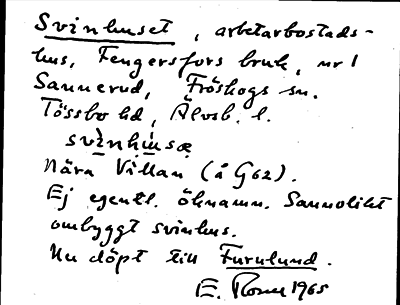 Svinhuset, arbetarbostads-
hus, Fengersfors bruk, nr 1
Sannerud, Fröskogs sn.
Tössbo hd, Älvsb. l.
svìnhúsæ
Nära Villan (å G62).
Ej egentl. öknamn. Sannolikt
ombyggt svinhus.
Nu döpt till Furulund.
E. 1965